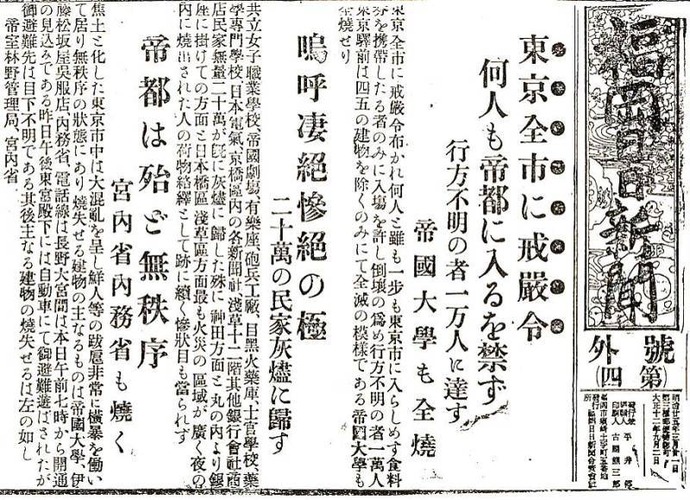 福岡日日新聞
號外
第四
東京全市に戒嚴令
何人も帝都に入るを禁ず
行方不明の者一万人に達す
帝國大學も全燒
東京全市に戒嚴令布かれ何人と雖も一歩も東京市に入らしめず食料
を携帶したる者のみに入場を許し倒壞の爲め行方不明の者一萬人
東京驛前は四五の建物を除くのみにて全滅の模樣である帝國大學も
全燒せり
嗚呼凄絶慘絶の極
二十萬の民家灰燼に歸す
共立女子職業學校、帝國劇場、有樂座、砲兵工廠、目黑火藥庫、士官學校、藥
學專門學校、日本電氣、京橋區內の各新聞社、淺草十二階其他銀行會社商
店民家無量二十萬が既に灰燼に歸した殊に神田方面と丸の內より銀
座に掛けての方面と日本橋區、淺草區方面最も火災の區域が廣く夜の
內に燒出された人の荷物絡繹として跡に續く慘狀目も當られず
帝都は殆ど無秩序
宮內省內務省も燒く
焦土と化した東京市中は大混亂を呈し鮮人等の跋扈非常に橫暴を働い
て居り無秩序の狀態にあり燒失せる建物の主なるものは帝國大學、伊
藤松坂屋吳服店、內務省、電話線は長野大宮間は本日午前七時から開通
の見込みである昨日午後東宮殿下には自動車にて御避難遊ばされたが
御避難先は目下不明である其後主なる建物の燒失せるは左の如し
帝室林野管理局、宮內省